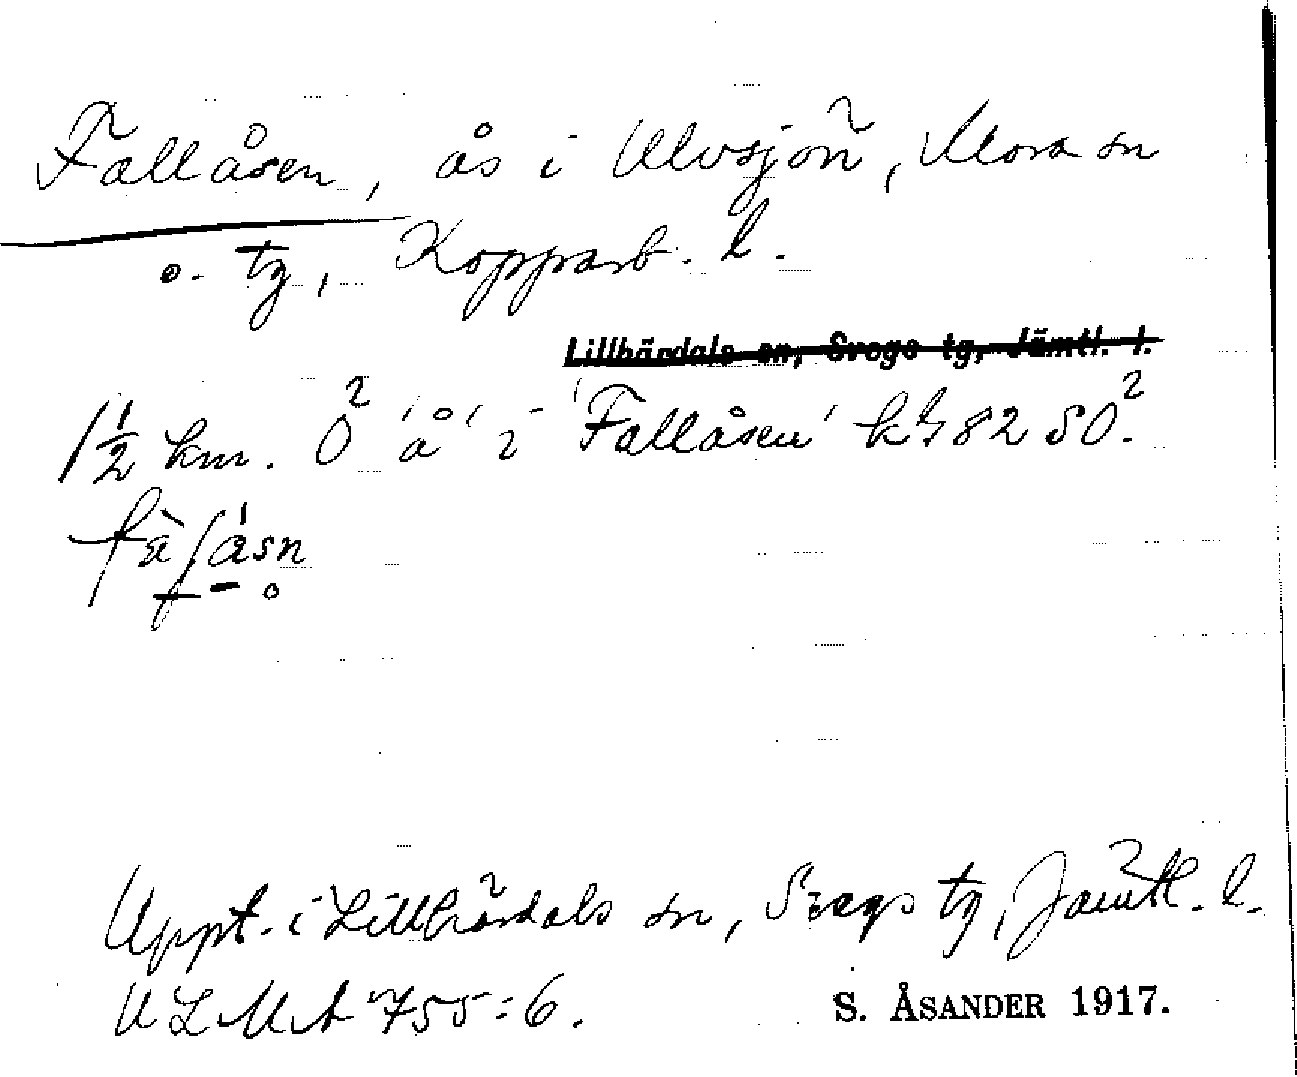 Fallåsen, ås i Ulvsjön, Mora sn
o. tg, Kopparb. l.
Lillhärdals sn, Svegs tg, Jämtl. l.
1 1/2 km. Ö 'å' i 'Fallåsen' kbl 82 SÖ.
Uppt. i Lillhärdals sn, Svegs tg, Jämtl. l.
ULMA 755:6.
S. ÅSANDER 1917.